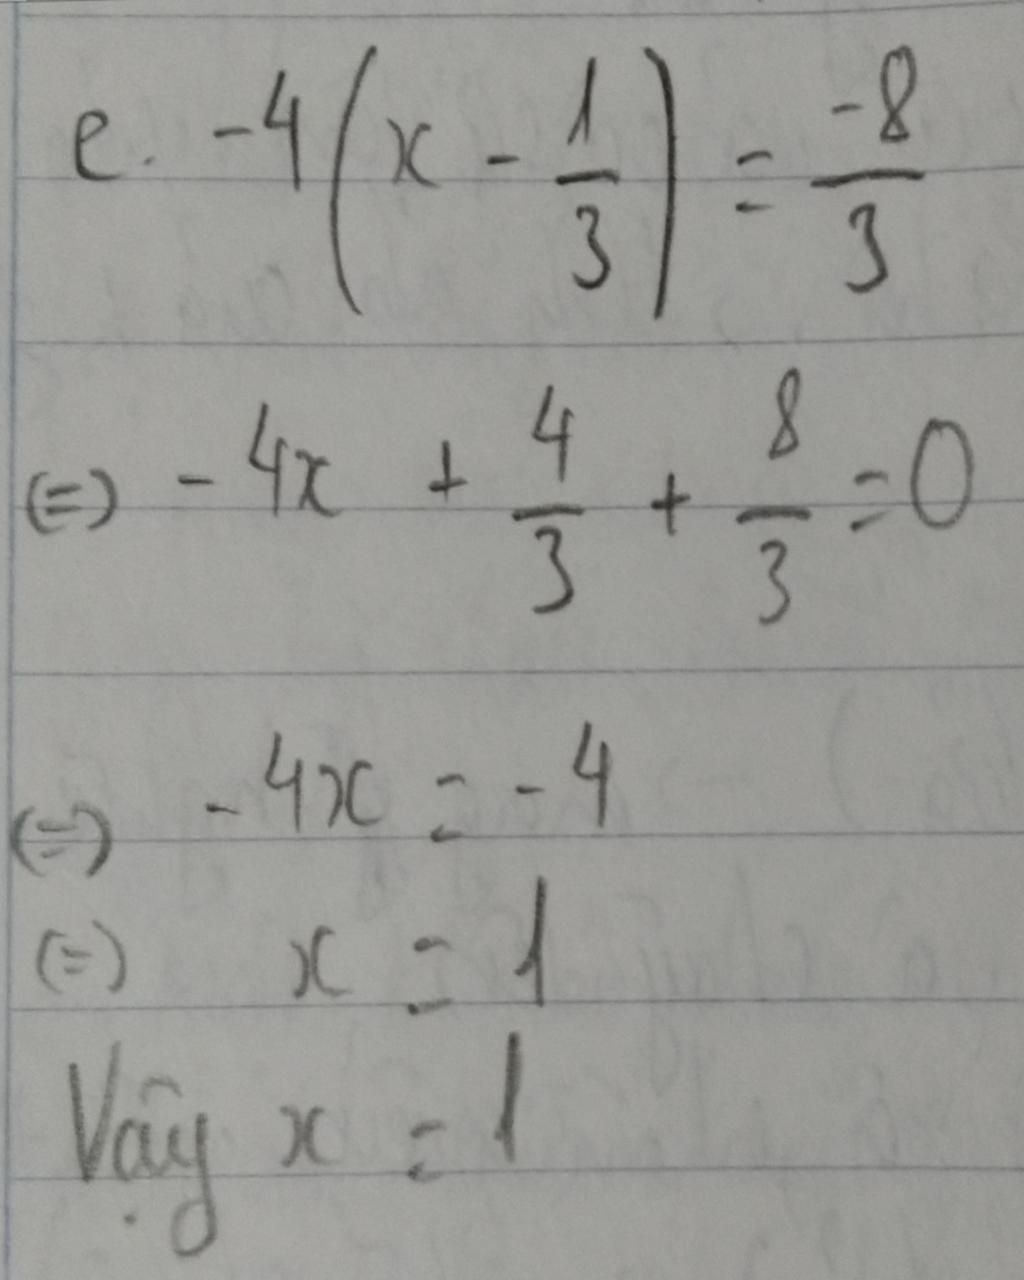 e. -4(x - 1/3) = -8/3
(=) -4x + 4/3 + 8/3 = 0
(=) -4x = -4
(=) x = 1
Vậy x = 1